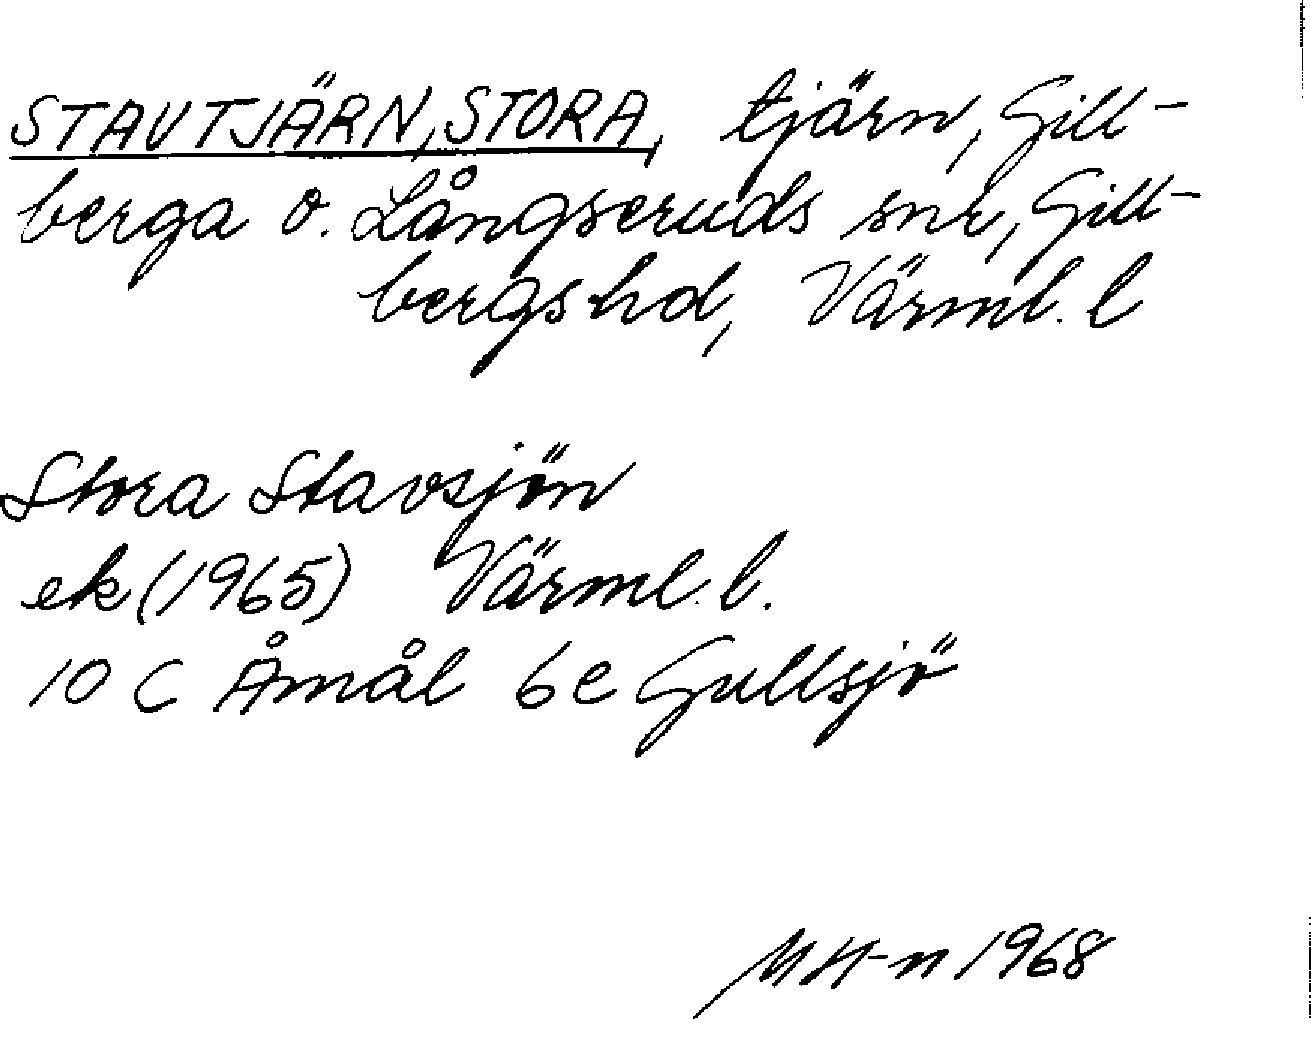 STAVTJÄRN, STORA, tjärn, Gill-
berga o. Långseruds snr, Gill-
bergs hd, Värml. l
Stora Stavsjön
ek (1965) Värml. l.
10 C Åmål 6e Gullsjö
MH-n 1968